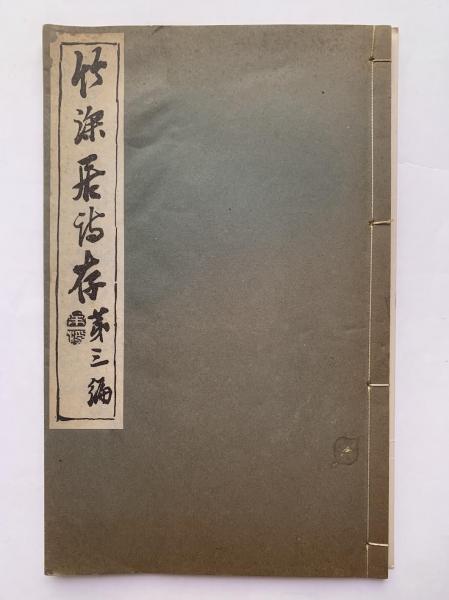 竹深居诗存
第三编